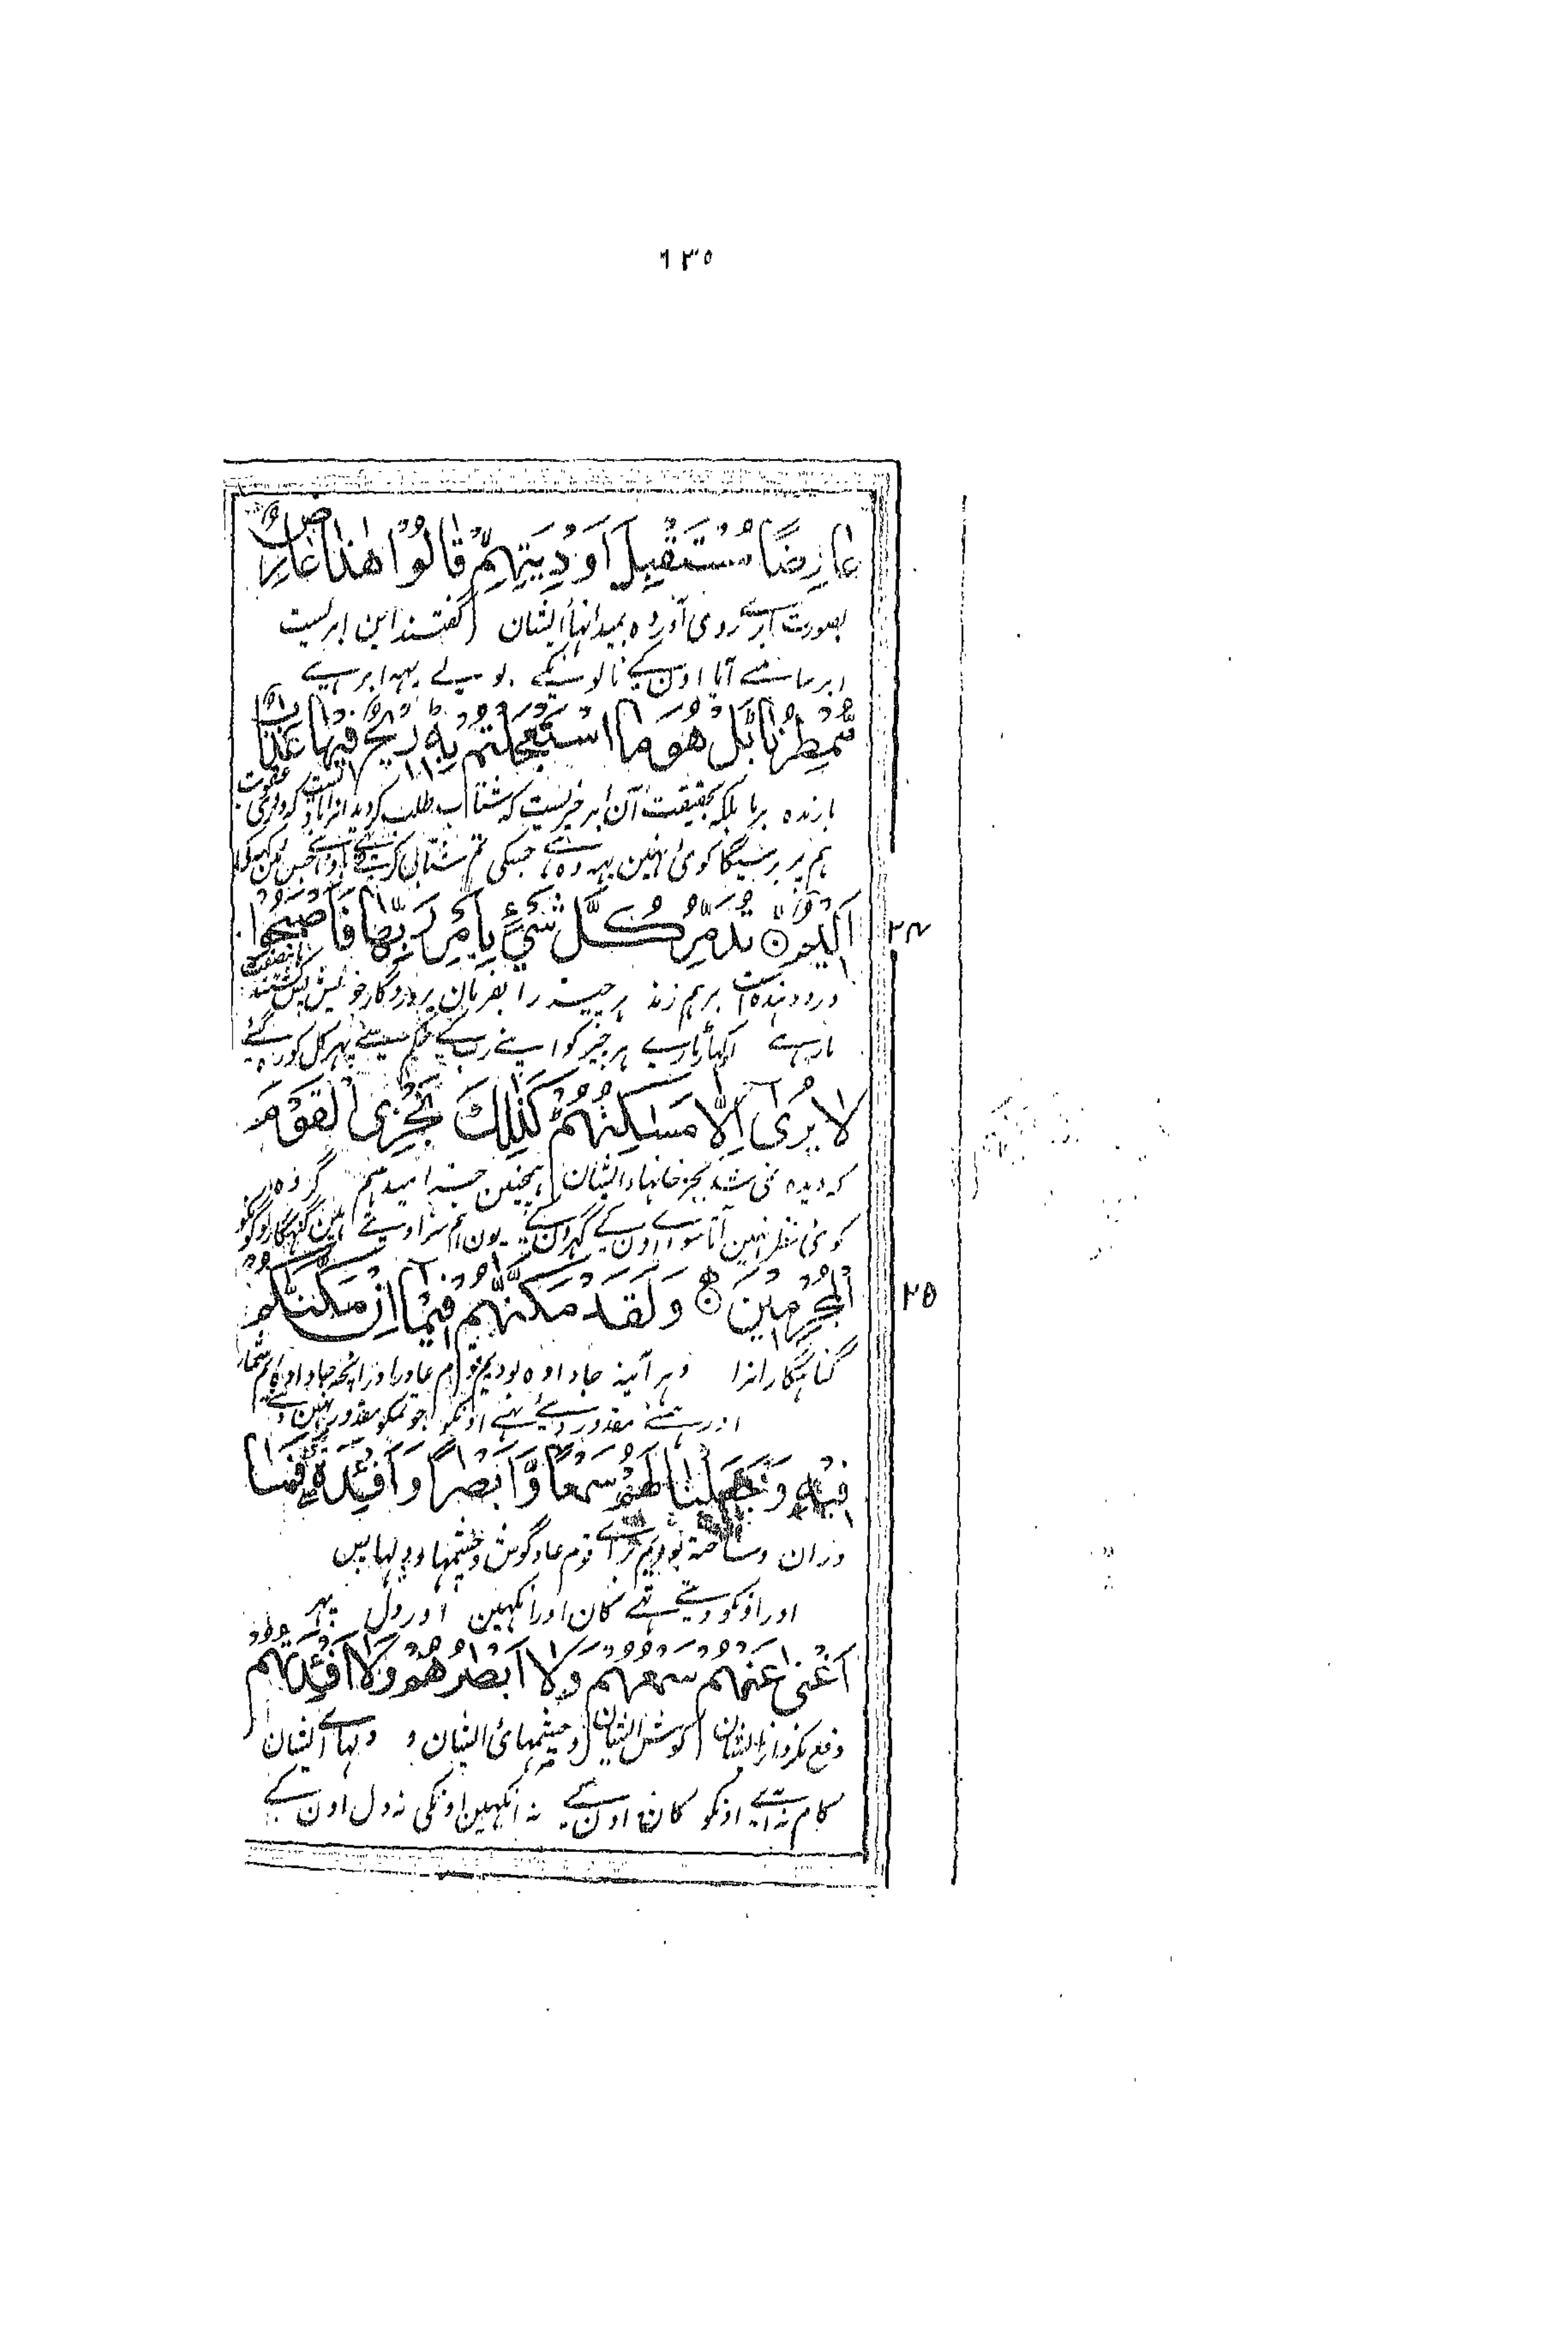 ٦٣٥
عَارِضًا مُّسْتَقْبِلَ اَوْدِيَتِهِمْ قَالُوْا هٰذَا عَارِضٌ
بصورت ابرے روی آورده بمیدانهاء ایشان گفتند این ابریست
ابر سامنے آیا اون کے نالونکے بولے یہہ ابر ہے
مُّمْطِرُنَا بَلْ هُوَ مَا اسْتَعْجَلْتُمْ بِهٖ رِيْحٌ فِيْهَا عَذَابٌ
بارنده برما بلکه بحقیقت آن ابر چیزیست که شتاب طلب کردید انرا بادیست که در وی عقوبت
ہم پر برسیگا کوئی نہین یہہ وہ ہے جسکی تم شتابی کرتے تھے
اَلِيْمٌ تُدَمِّرُ كُلَّ شَيْءٍۭ بِاَمْرِ رَبِّهَا فَاَصْبَحُوْا
٢٤
درد دهنده است برهم زند هر چیز را بفرمان پروردگار خویش پس گشتند باینصفت
مار ہے اکہاڑ مارے ہر چیز کو اپنے رب کے حکم سے پہر کل کو رہ گئے
لَا يُرٰٓى اِلَّا مَسٰكِنُهُمْ كَذٰلِكَ نَجْزِى الْقَوْمَ
که دیده نمی شد بجز خانهاء ایشان همچنین جزا میدهم گروه
کوئی نظر نہین آتا سوائے اون کے گہرون کے یون ہم سزا دیتے ہین گنہگار لوگونکو
الْمُجْرِمِيْنَ وَلَقَدْ مَكَّنّٰهُمْ فِيْمَآ اِنْ مَّكَّنّٰكُمْ
٢٥
گناهگارانرا و هر آئینه جا داده بودیم قوم عاد را در آنچه جا داده ایم شمارا
اور ہمنے مقدور دیئے تہے اونکو جو تمکو مقدور نہین دئے
فِيْهِ وَجَعَلْنَا لَهُمْ سَمْعًا وَّاَبْصٰرًا وَّاَفْـِٕدَةً فَمَآ
دران و ساخته بودیم برائے قوم عاد گوش و چشمها و دلها پس
اور اونکو دیئے تہے کان اور انکہین اور دل پہر
اَغْنٰى عَنْهُمْ سَمْعُهُمْ وَلَآ اَبْصٰرُهُمْ وَلَآ اَفْـِٕدَتُهُمْ
دفع نکرد از ایشان گوش ایشان و چشمهائ ایشان و دلهائے ایشان
کام نہ آئے اونکو کان اون کے نہ انکہین اونکی نہ دل اون کے